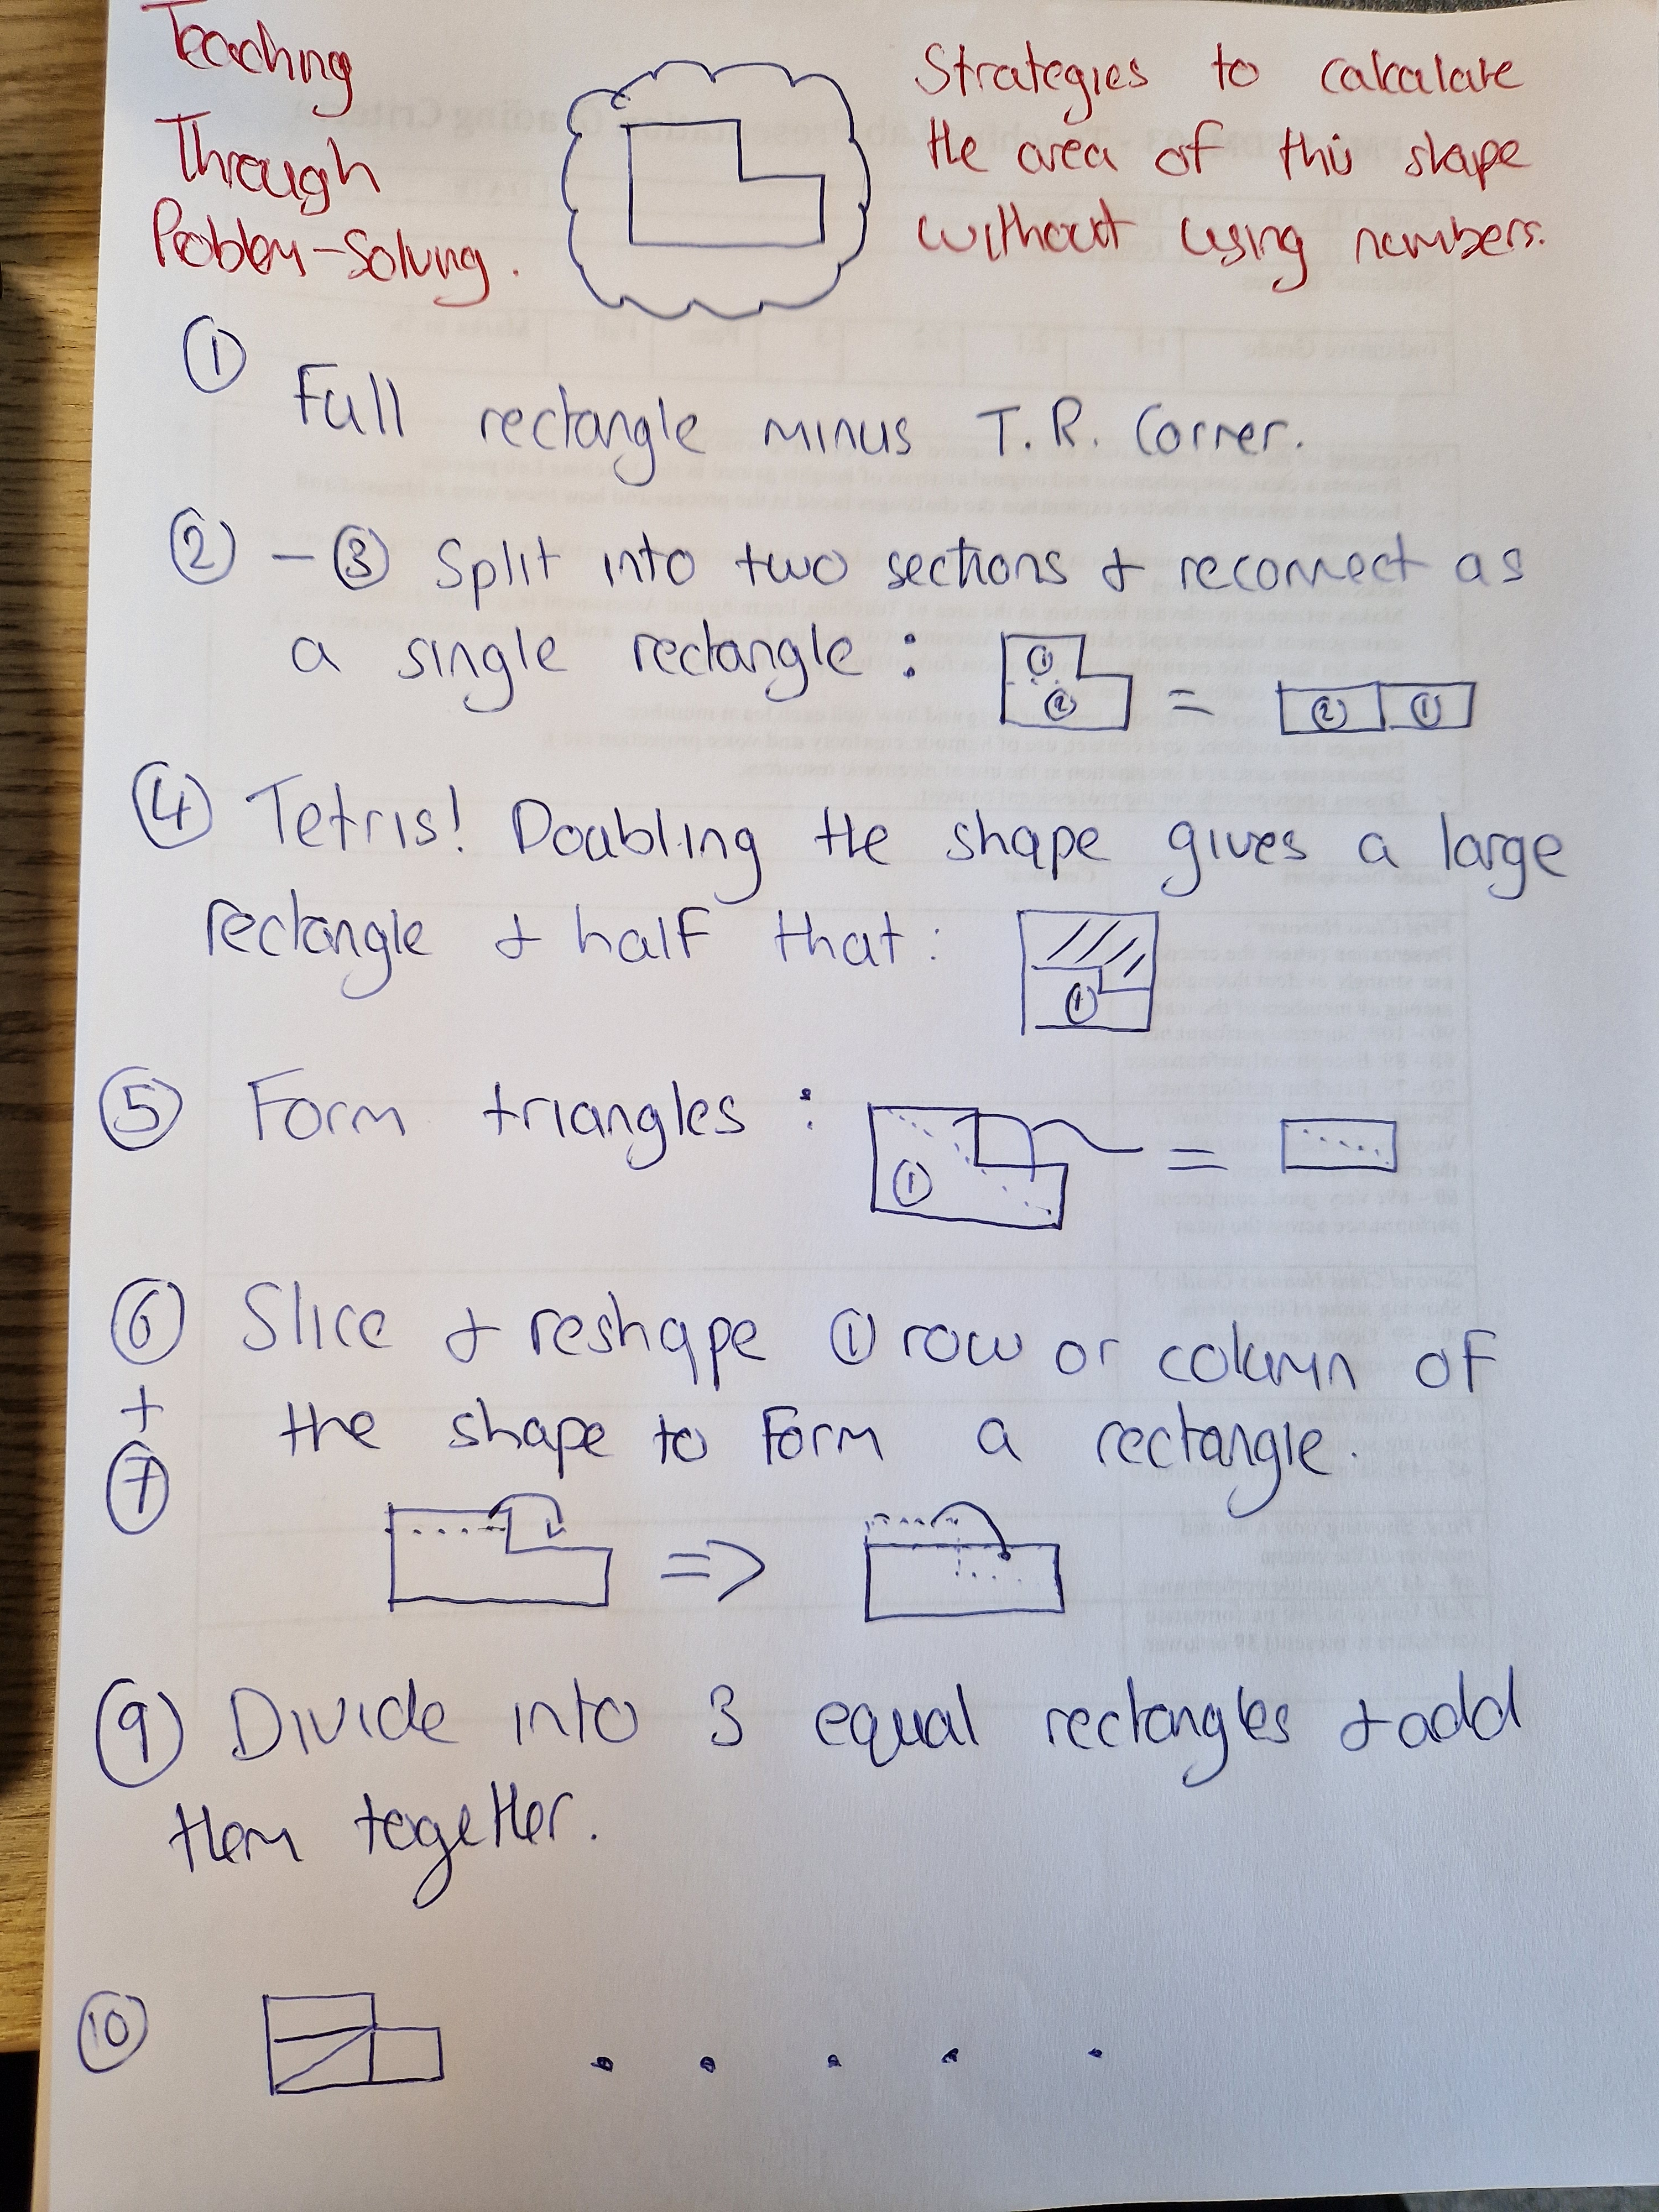 Teaching
Through
Problem-Solving.
Strategies to calculate
the area of this shape
without using numbers.
① Full rectangle minus T.R. Corner.
② - ③ Split into two sections & reconnect as
a single rectangle :
① ② = ② ①
④ Tetris! Doubling the shape gives a large
rectangle & half that :
①
⑤ Form triangles :
① =
⑥ Slice & reshape ① row or column of
+ the shape to form a rectangle.
⑦
⇒
⑨ Divide into 3 equal rectangles & add
them together.
⑩ . . . . .